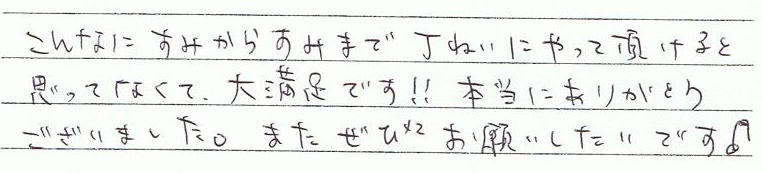 こんなに すみからすみまで 丁ねいにやって頂けると
思ってなくて、大満足です!! 本当にありがとう
ございました。 またぜひ×2お願いしたいです♪